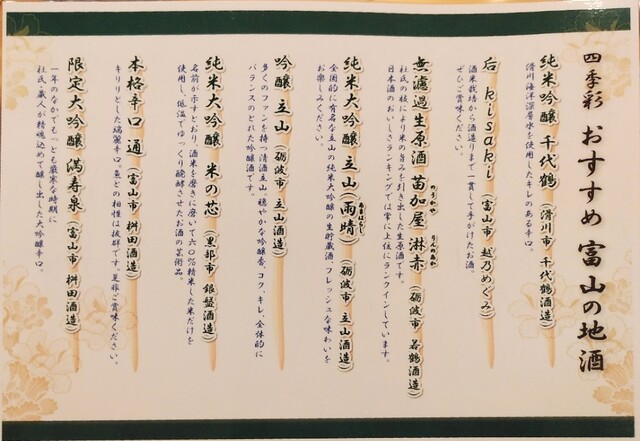 四季彩 おすすめ 富山の地酒
純米吟醸 千代鶴(滑川市 千代鶴酒造)
滑川海洋深層水を使用したキレのある辛口。
后 kisaki(富山市 越乃めぐみ)
酒米栽培から酒造りまで一貫して手がけたお酒。
ぜひご賞味ください。
無濾過生原酒 苗加屋 淋赤(砺波市 若鶴酒造)
のうかや りんのあか
杜氏の技により米の旨みを引き出した生原酒です。
日本酒のおいしさランキングでは常に上位にランクインしています。
純米大吟醸 立山(雨晴)(砺波市 立山酒造)
あまはらし
全国的に有名な立山の純米大吟醸の生貯蔵酒。フレッシュな味わいを
お楽しみください。
吟醸 立山(砺波市 立山酒造)
多くのファンを持つ清酒立山。穏やかな吟醸香、コク、キレ、全体的に
バランスのとれた吟醸酒です。
純米大吟醸 米の芯(黒部市 銀盤酒造)
名前が示すとおり、酒米を磨きに磨いて六〇%精米した米だけを
使用し、低温でゆっくり醗酵させたお酒の芸術品。
本格辛口 通(富山市 桝田酒造)
キリリとした端麗辛口。魚との相性は抜群です。是非ご賞味ください。
限定大吟醸 満寿泉(富山市 桝田酒造)
一年のなかでも、もっとも厳寒な時期に
杜氏、蔵人が精魂込めて醸し出した大吟醸辛口。